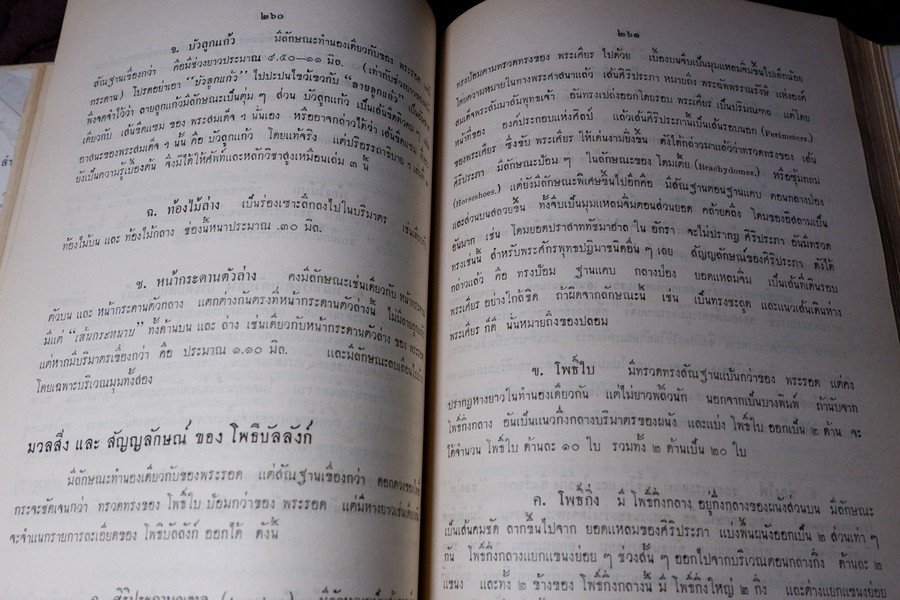 ๒๖๐
จ. บัวลูกแก้ว มีลักษณะทำนองเดียวกับของ พระรอด
สัณฐานเขื่องกว่า คือมีช่วงยาวประมาณ ๔.๕๐—๑๑ มิล. (เท่ากับช่วง
กระดาน) โปรดอย่าเอา "บัวลูกแก้ว" ไปปะปนไขว้เขวกับ "ลายลูกแก้ว"
พึงจดจำไว้ว่า ลายลูกแก้วมีลักษณะเป็นตุ่ม ๆ ส่วน บัวลูกแก้ว เป็นเส้นขีด
เดียวกับ เส้นขีดแซม ของ พระสมเด็จ ฯ นั้นเอง หรืออาจกล่าวได้ว่า เส้นขีดแซม
อาสนะของพระสมเด็จ ฯ นั้น คือ บัวลูกแก้ว โดยแท้จริง แต่ปริอรรถาธิบาย
ยังเป็นความรู้เบื้องต้น จึงมิได้ให้ศัพท์และหลักวิชาสูงเหมือนเล่ม ๓ นี้
ฉ. ท้องไม้ล่าง เป็นร่องเซาะลึกลงไปในปริมาตร เช่นเดียวกับ
ท้องไม้บน และ ท้องไม้กลาง ช่องนี้หนาประมาณ .๓๐ มิล.
ช. หน้ากระดานตัวล่าง คงมีลักษณะเช่นเดียวกับ หน้ากระดาน
ตัวบน และ หน้ากระดานตัวกลาง แตกต่างกันตรงที่หน้ากระดานตัวล่างนี้
มีแต่ "เส้นกระหนาบ" ทั้งด้านบน และ ล่าง เช่นเดียวกับหน้ากระดานตัวล่าง ของ พระรอด
แต่หากมีปริมาตรเขื่องกว่า คือ ประมาณ ๑.๑๐ มิล. และมีลักษณะลบเลือน
โดยเฉพาะบริเวณมุมทั้งสอง
มวลสิ่ง และ สัญญลักษณ์ ของ โพธิบัลลังก์
มีลักษณะทำนองเดียวกับของพระรอด แต่สัณฐานเขื่องกว่า
กระจะชัดเจนกว่า ทรวดทรงของ โพธิ์ใบ ป้อมกว่าของ พระรอด แต่มีหางยาวเช่นเดียวกัน
จะจำแนกรายการละเอียดของ โพธิบัลลังก์ ออกได้ ดังนี้
๒๖๑
ทรงป้อมตามทรวดทรงของ พระเศียร ไปด้วย เบื้องบนจึงเป็นมุมแหลมจิ่มขึ้นไปเล็กน้อย
โดยความหมายในทางพระศาสนาแล้ว เส้นศิริประภา หมายถึง พระฉัพพรรณรังษี แห่งองค์
สมเด็จพระสัมมาสัมพุทธเจ้า อันทรงเปล่งออกโดยรอบ พระเศียร เป็นปริมณฑล แต่โดย
หน้าที่ของ องค์ประกอบแห่งศิลป์ แล้วเส้นศิริประภานี้เป็นเส้นรอบนอก (Perimeters.)
ของพระเศียร ซึ่งขับ พระเศียร ให้เด่นงามยิ่งขึ้น ดังได้กล่าวมาแล้วว่าทรวดทรงของ เส้น
ศิริประภา มีลักษณะป้อม ๆ ในลักษณะของ โดมเตี้ย (Brachydomes.) หรือซุ้มกลม
(Horseshoes.) แต่ยังมีลักษณะพิเศษขึ้นไปอีกคือ มีสัณฐานตอนฐานแคบ ตอนกลางป่อง
และส่วนบนสอวบขึ้น ทั้งจิ่มเป็นมุมแหลมขึ้นตอนส่วนยอด คล้ายคลึง โดมของอิสลามเป็น
อันมาก เช่น โดมยอดปราสาททัชมาฮาล ใน อักรา จะไม่ปรากฏ ศิริประภา อันมีทรวด
ทรงเช่นนี้ สำหรับพระศักรพุทธปฏิมาชนิดอื่น ๆ เลย สัญญลักษณ์ของศิริประภา ดังได้
กล่าวแล้ว คือ ทรงป้อม ฐานแคบ กลางป่อง ยอดแหลมจิ่ม เป็นเส้นที่เดินรอบ
พระเศียร อย่างใกล้ชิด ถ้าผิดจากลักษณะนี้ เช่น เป็นทรงชะลูด และแนวเส้นเดินห่าง
พระเศียร ก็ดี นั่นหมายถึงของปลอม
ข. โพธิ์ใบ มีทรวดทรงสัณฐานแป้นกว่าของ พระรอด แต่คง
ปรากฏหางยาวในทำนองเดียวกัน แต่ไม่ยาวพลิ้วนัก นอกจากเป็นบางพิมพ์ ถ้านับจาก
โพธิ์กิ่งกลาง อันเป็นแนวกึ่งกลางบริมาตรของผนัง และแบ่ง โพธิ์ใบ ออกเป็น ๒ ด้าน จะ
ได้จำนวน โพธิ์ใบ ด้านละ ๑๐ ใบ รวมทั้ง ๒ ด้านเป็น ๒๐ ใบ
ค. โพธิ์กิ่ง มี โพธิ์กิ่งกลาง อยู่กึ่งกลางของผนังส่วนบน มีลักษณะ
เป็นเส้นคมชัด ลากขึ้นไปจาก ยอดแหลมของศิริประภา แบ่งพื้นผนังออกเป็น ๒ ส่วนเท่า ๆ
กัน โพธิ์กิ่งกลางแยกแขนงย่อย ๆ ช่วงสั้น ๆ ออกไปจากบริเวณตอนกลางกิ่ง ด้านละ ๒
แขนง และทั้ง ๒ ข้างของ โพธิ์กิ่งกลางนี้ มี โพธิ์กิ่งใหญ่ ๒ กิ่ง และต่างแยกแขนงย่อย